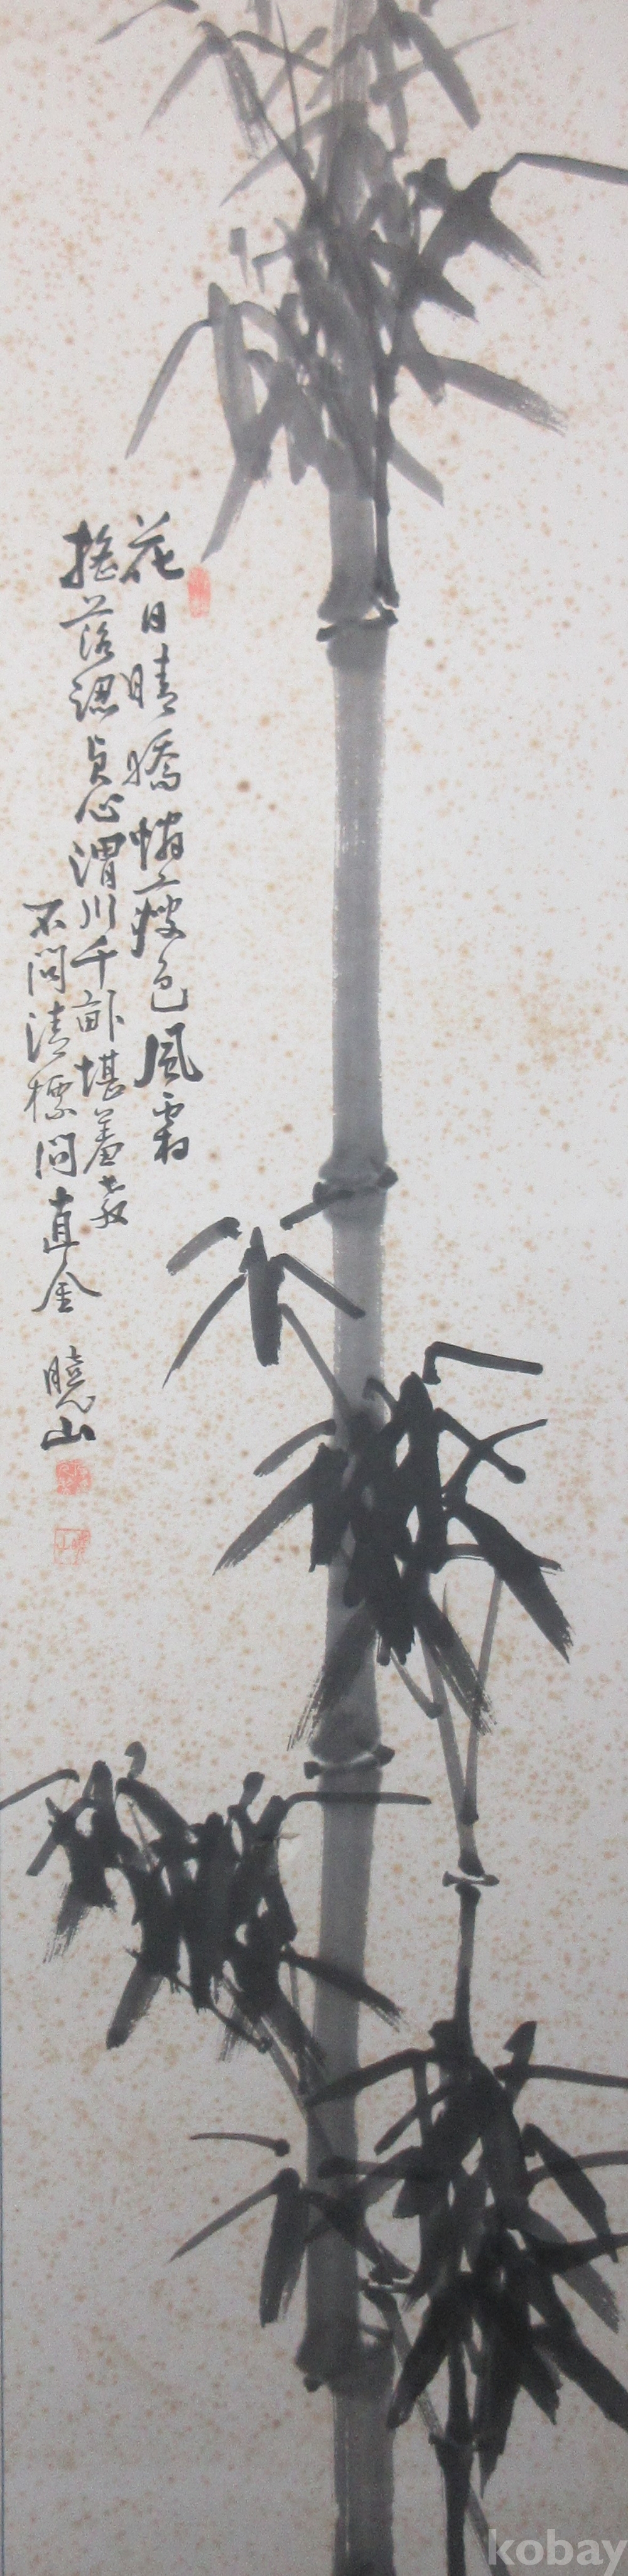 花日晴嬌瘦色風霜
搖落認貞心渭川千畝堪羞殺
不問清標問直金
曉山
kobay